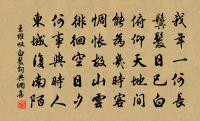 我年一何長
鬢髮日已白
俯仰天地間
能為幾時客
惆悵故山雲
徘徊空日夕
何事與時人
東城復南陌
王維歎白髮詞典網書